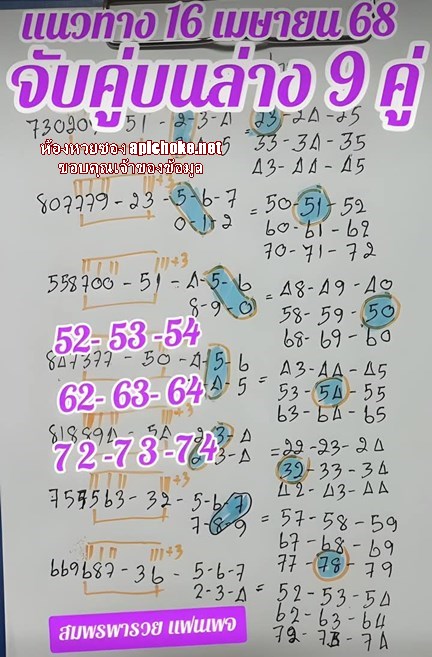 แนวทาง 16 เมษายน 68
จับคู่บนล่าง 9 คู่
- 51 - 2-3-4 = 23-24-25
33-34-35
43-44-45
ห้องหวยซอง apichoke.net
ขอบคุณเจ้าของข้อมูล
807779-23-5-6-7 = 50-51-52
0-1-2 60-61-62
70-71-72
+3
558700-51-4-5-6 = 48-49-40
8-9-0 58-59-50
68-69-60
52-53-54
+3
847377-50-4-5-6 = 43-44-45
62-63-64
53-54-55
63-64-65
+3
72-73-74
= 22-23-24
32-33-34
42-43-44
563-32-5-6-7 = 57-58-59
7-8-9 67-68-69
77-78-79
+3
669687-36-5-6-7 = 52-53-54
2-3-4 62-63-64
72-73-74
สมพรพารวย แฟนเพจ